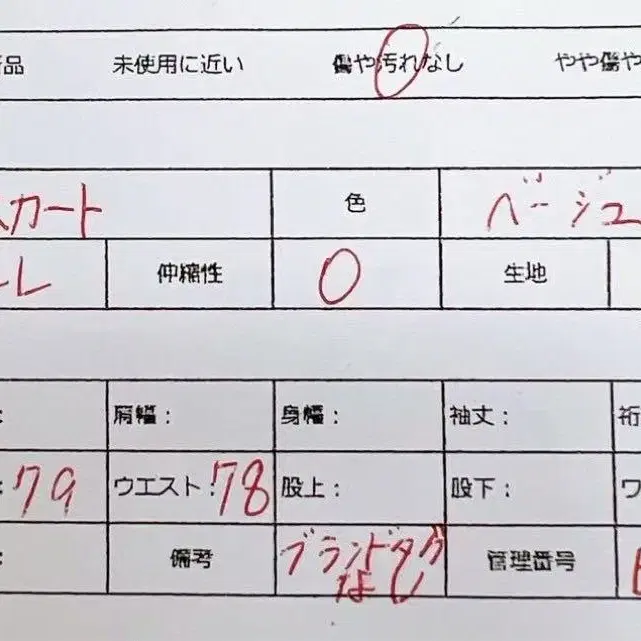 品 未使用に近い 傷や汚れなし やや傷や
スカート 色 ベージュ
レ 伸縮性 ○ 生地
: 肩幅: 身幅: 袖丈: 裄
: 79 ウエスト: 78 股上: 股下: ワ
: 備考 ブランドタグ 管理番号
なし